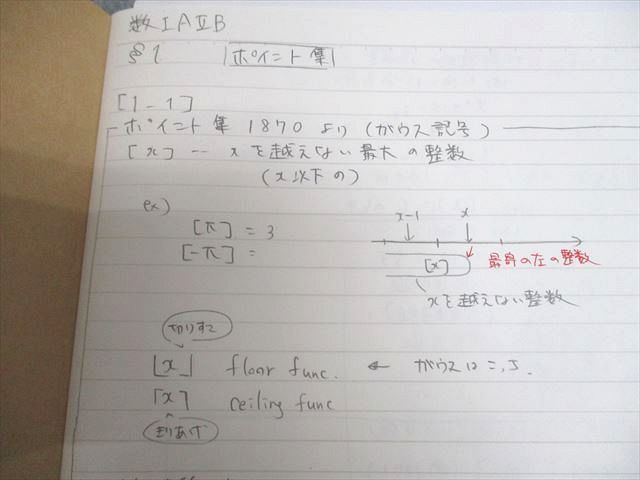 数ⅠAⅡB
§1 ポイント集
[1-1]
ポイント集 1870 より (ガウス記号)
[x] … xを越えない最大の整数
(x以下の)
ex)
[π] = 3
[-π] =
x-1 x
[x] 最寄の左の整数
xを越えない整数
切りすて
⌊x⌋ floor func. ← ガウスはこっち.
⌈x⌉ ceiling func
切りあげ